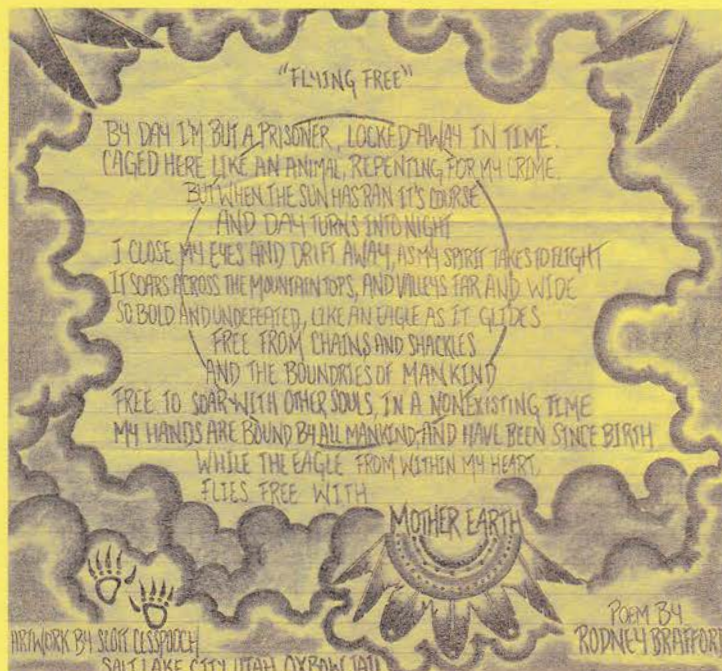 "FLYING FREE"
BY DAY I'M BUT A PRISONER, LOCKED AWAY IN TIME.
CAGED HERE LIKE AN ANIMAL, REPENTING FOR MY CRIME.
BUT WHEN THE SUN HAS RAN IT'S COURSE
AND DAY TURNS INTO NIGHT
I CLOSE MY EYES AND DRIFT AWAY, AS MY SPIRIT TAKES TO FLIGHT
IT SOARS ACROSS THE MOUNTAIN TOPS, AND VALLEYS FAR AND WIDE
SO BOLD AND UNDEFEATED, LIKE AN EAGLE AS IT GLIDES
FREE FROM CHAINS AND SHACKLES
AND THE BOUNDRIES OF MANKIND
FREE TO SOAR WITH OTHER SOULS, IN A NONEXISTING TIME
MY HANDS ARE BOUND BY ALL MANKIND, AND HAVE BEEN SINCE BIRTH
WHILE THE EAGLE FROM WITHIN MY HEART,
FLIES FREE WITH
MOTHER EARTH
ARTWORK BY SCOTT CESSPOOCH
SALT LAKE CITY, UTAH OXBOW JAIL
POEM BY
RODNEY BRAFFORD